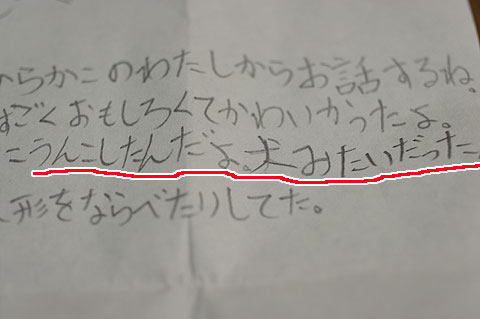 らかこのわたしからお話するね。
すごくおもしろくてかわいかったよ。
こうんこしたんだよ。犬みたいだった。
形をならべたりしてた。